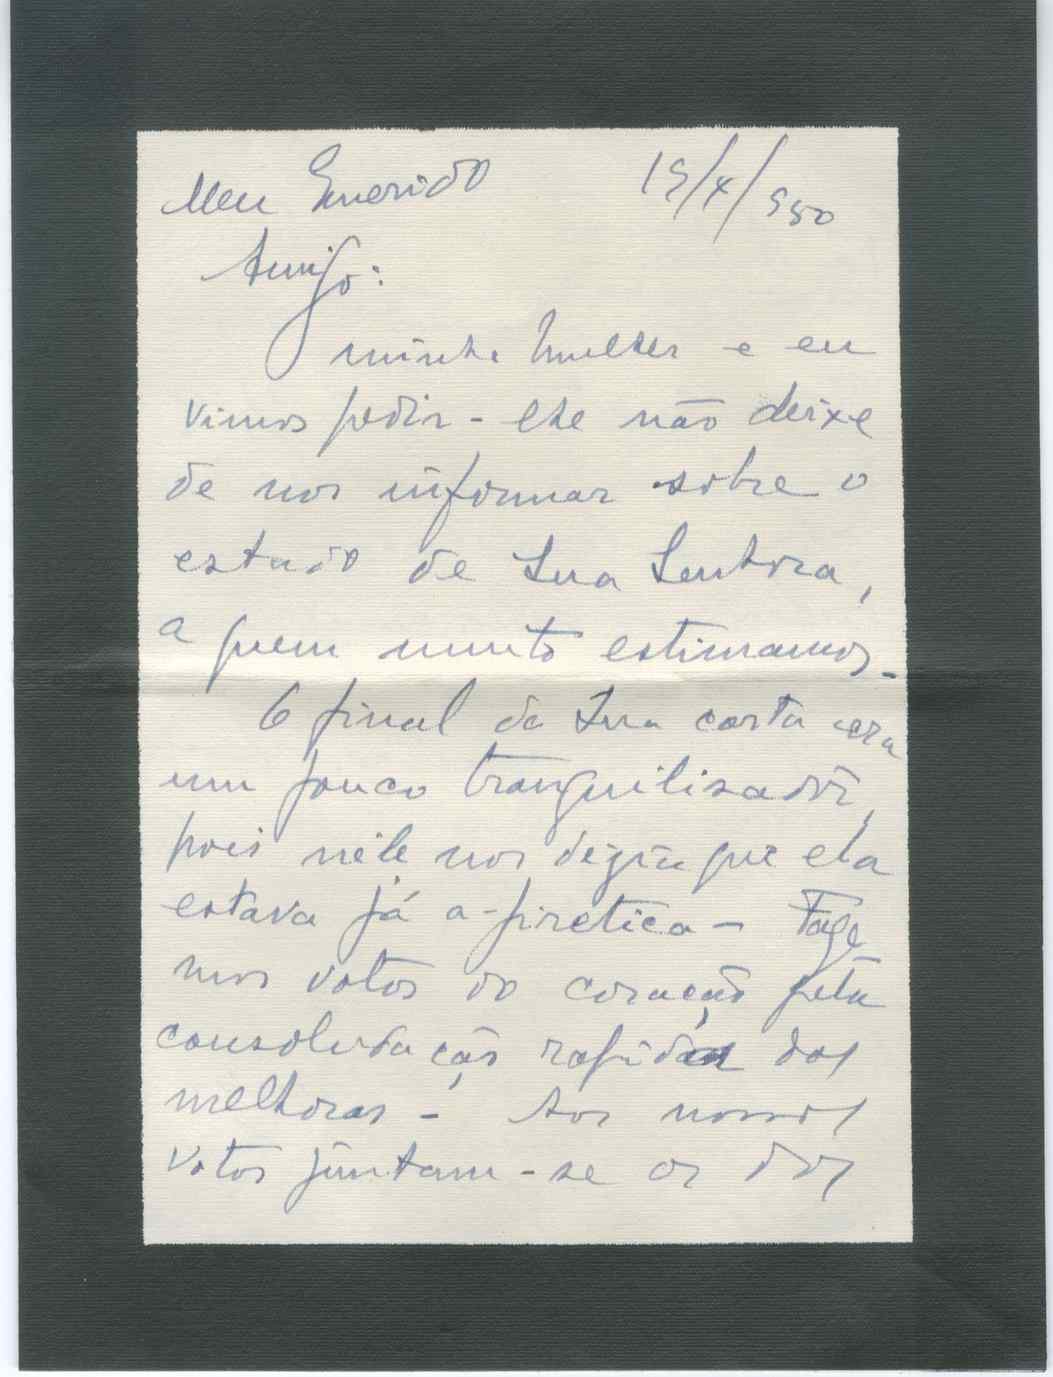 Meu Querido 19/4/950
Amigo:
minha mulher e eu
vimos pedir-lhe não deixe
de nos informar sobre o
estado de Sua Senhora,
a quem muito estimamos.
O final da Sua carta era
um pouco tranquilisadôr,
pois nêle nos dizia que ela
estava já a-piretica - Faze
mos votos do coração pela
consolidação rapida das
melhoras - Aos nossos
votos juntam-se os dos